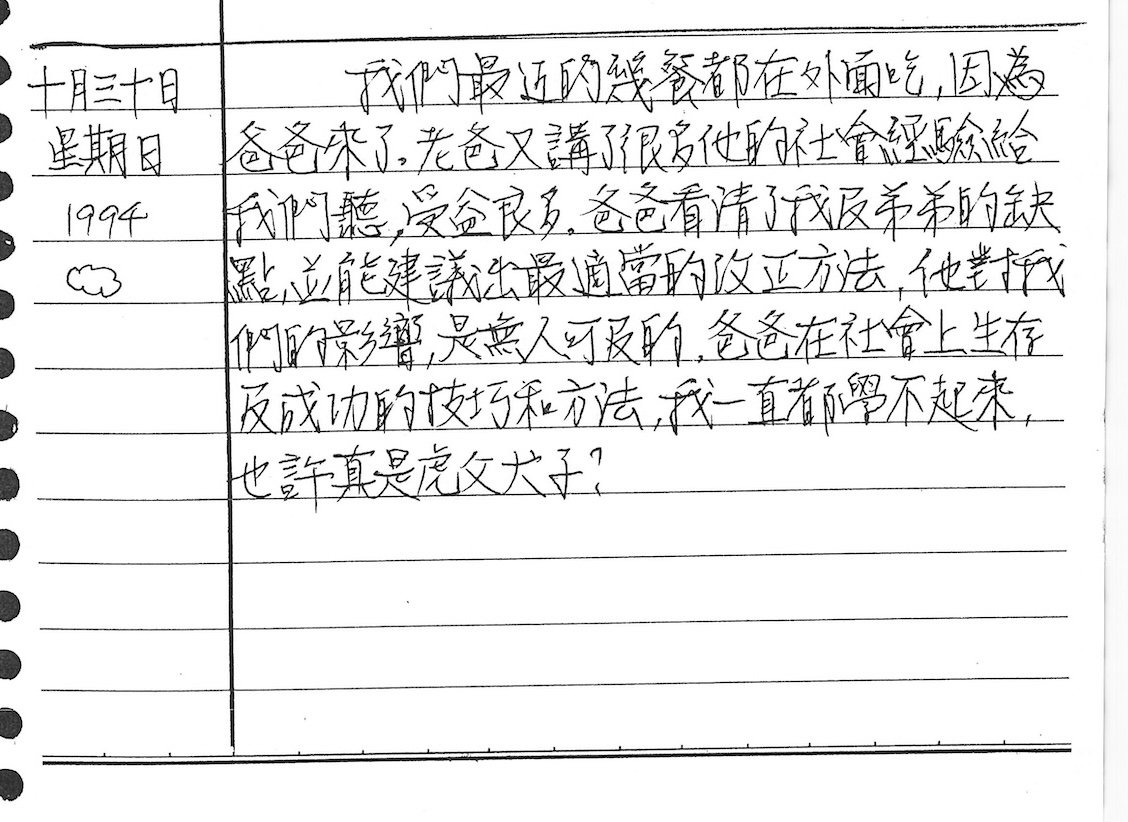 十月三十日
星期日
1994
我們最近的幾餐都在外面吃,因為
爸爸來了。老爸又講了很多他的社會經驗給
我們聽,受益良多。爸爸看清了我及弟弟的缺
點,並能建議出最適當的改正方法,他對我
們的影響,是無人可及的。爸爸在社會上生存
及成功的技巧和方法,我一直都學不起來,
也許真是虎父犬子?